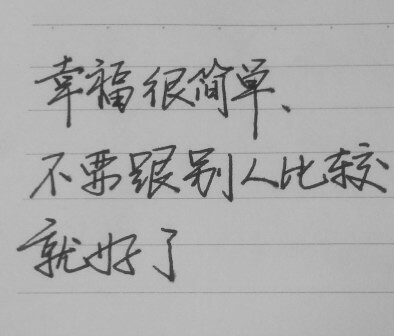 幸福很简单、
不要跟别人比较
就好了